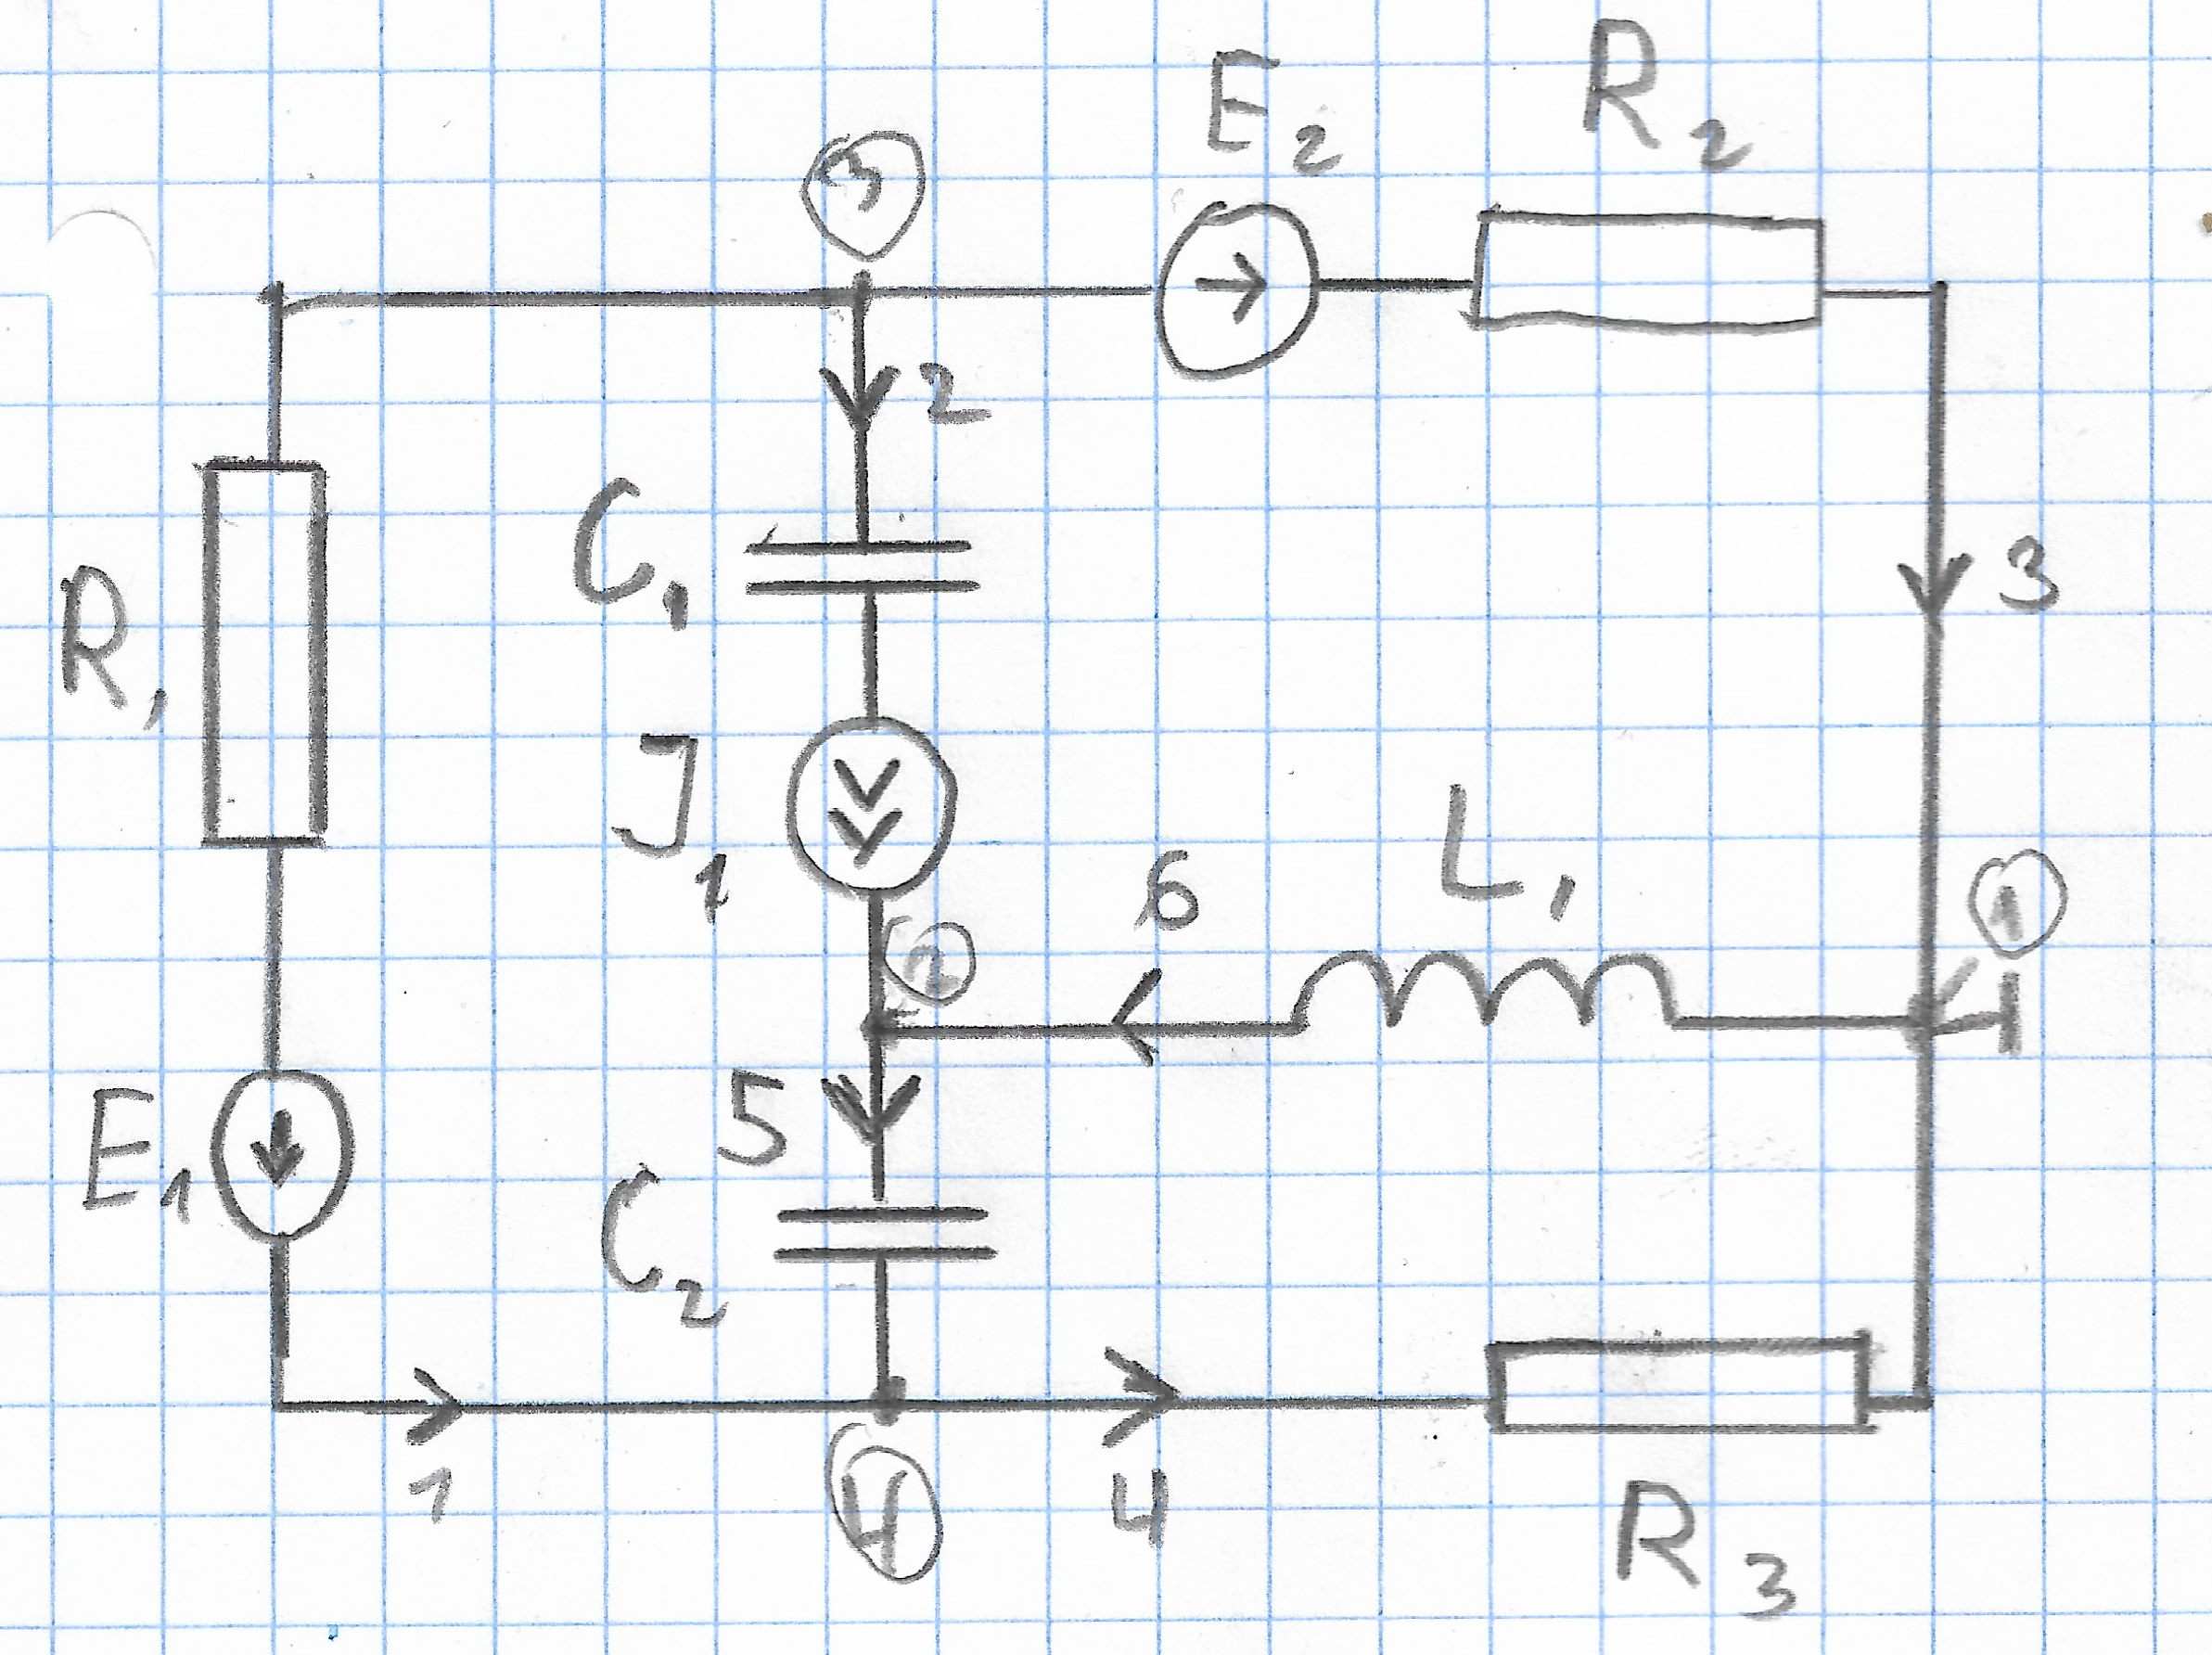 E2 R2
3
2
C1
R1
3
J1
6 L1
1
2
5
E1
C2
1 4
4
R3